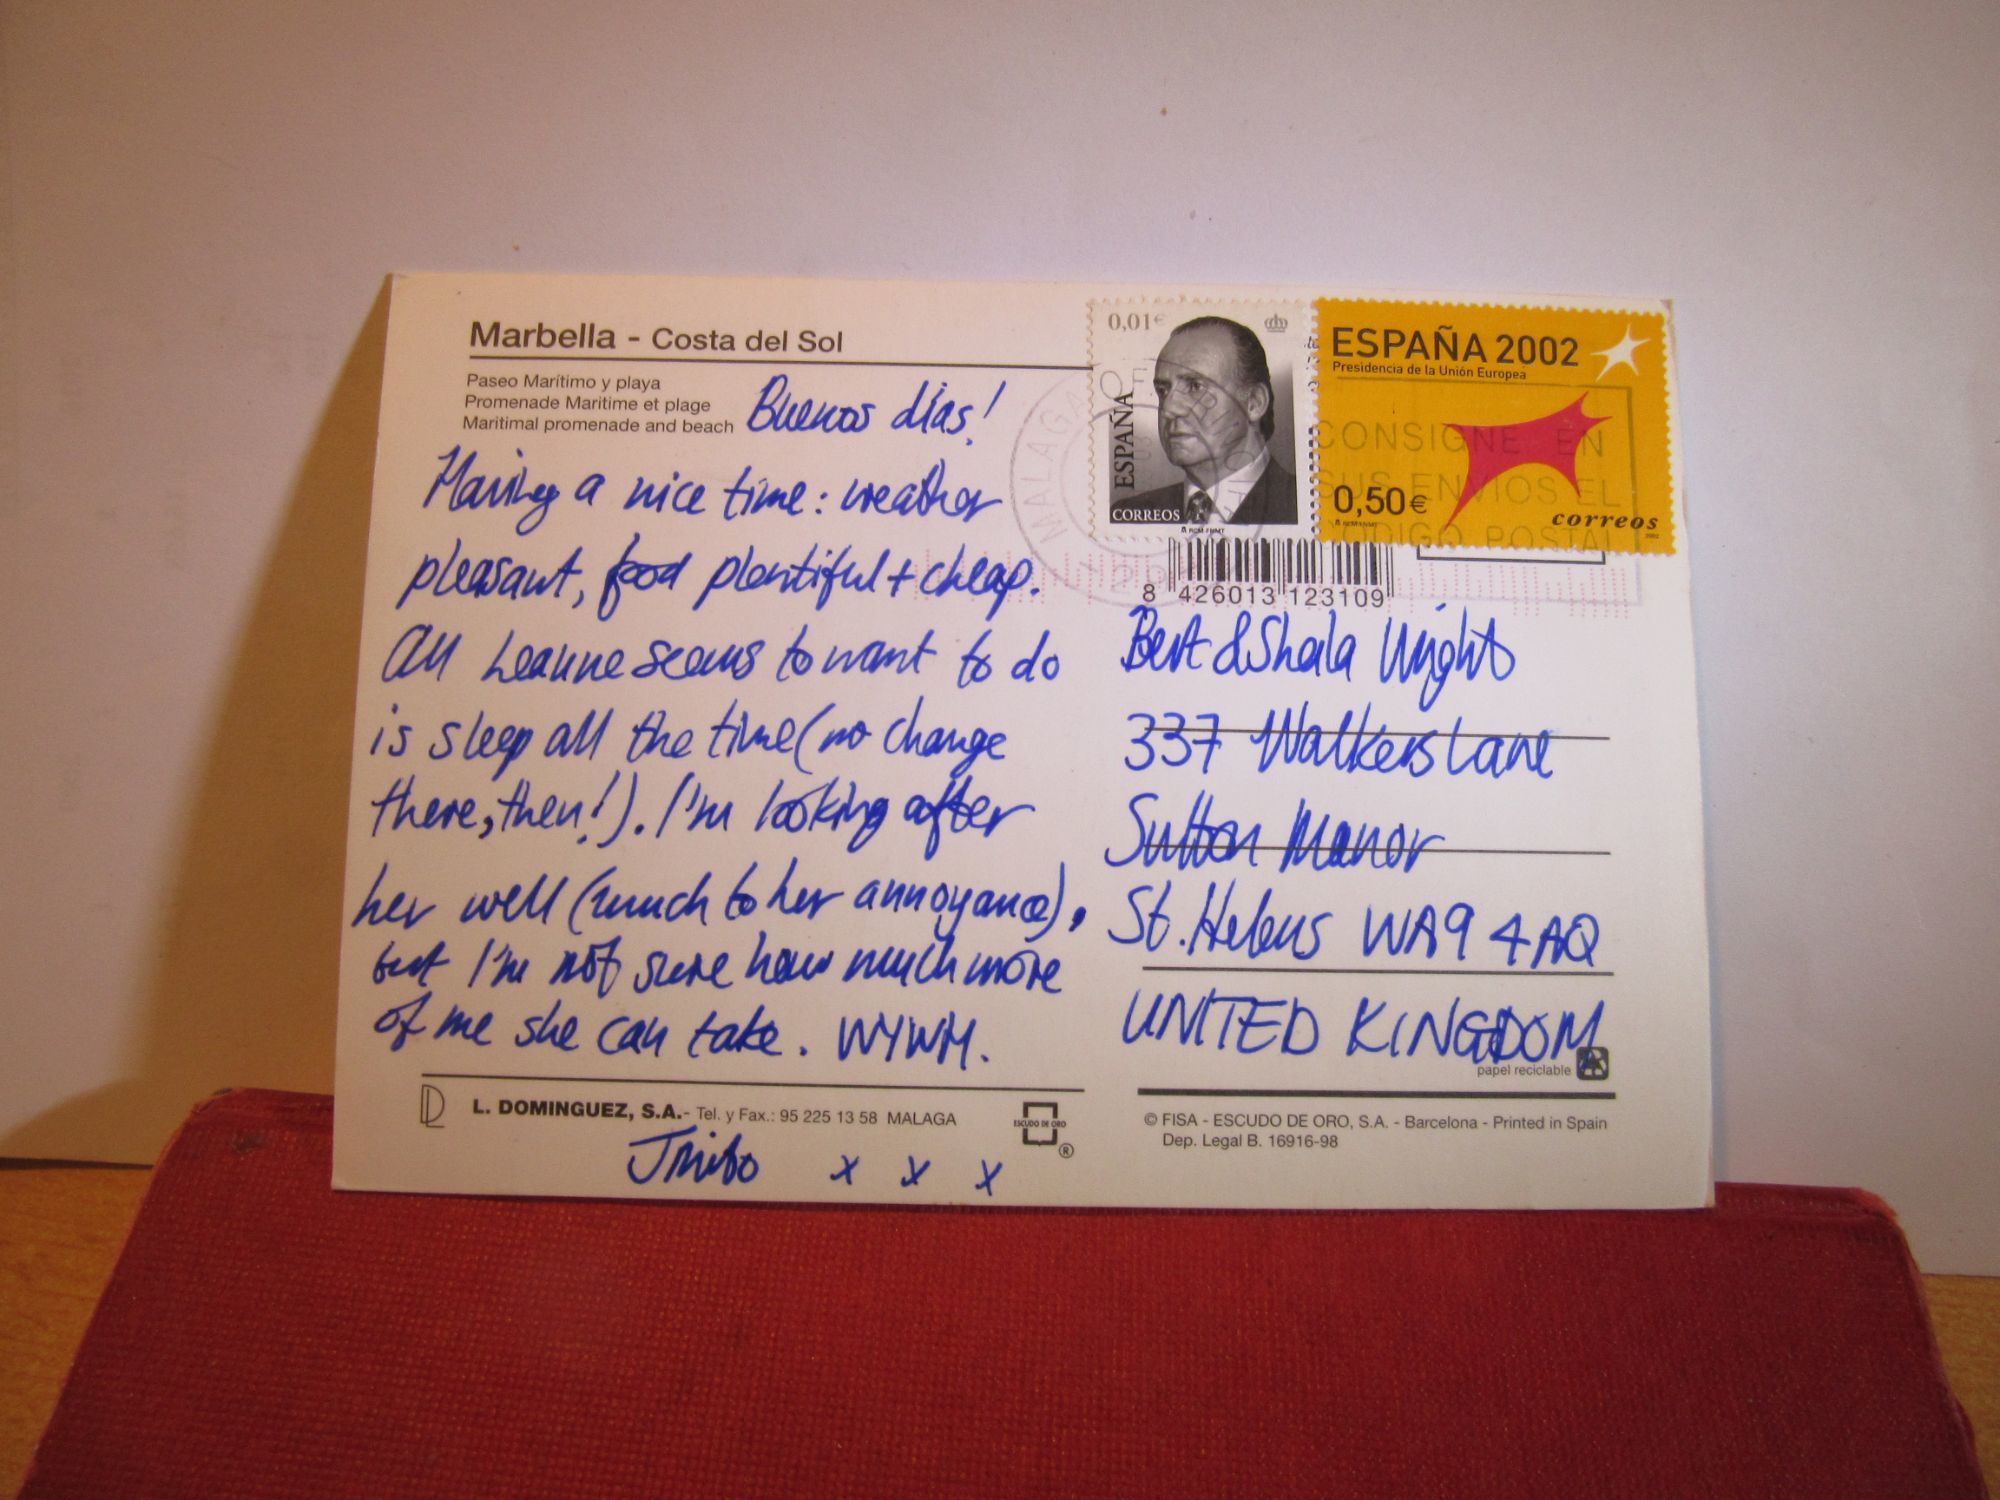 Marbella - Costa del Sol
Paseo Marítimo y playa
Promenade Maritime et plage
Maritimal promenade and beach
Buenos dias!
Having a nice time: weather
pleasant, food plentiful + cheap.
All Leanne seems to want to do
is sleep all the time (no change
there, then!). I'm looking after
her well (much to her annoyance),
but I'm not sure how much more
of me she can take. WYWH.
L. DOMINGUEZ, S.A.- Tel. y Fax.: 95 225 13 58 MALAGA
ESCUDO DE ORO
®
x x x
0,01€
ESPAÑA
CORREOS
RCM-FNMT
ESPAÑA 2002
Presidencia de la Unión Europea
0,50€
RCM-FNMT
correos
2002
MALAGA
CONSIGNE EN
SUS ENVIOS EL
CODIGO POSTAL
8 426013 123109
Bert & Sheila Wright
337 Walkers Lane
Sutton Manor
St. Helens WA9 4AQ
UNITED KINGDOM
papel reciclable
© FISA - ESCUDO DE ORO, S.A. - Barcelona - Printed in Spain
Dep. Legal B. 16916-98